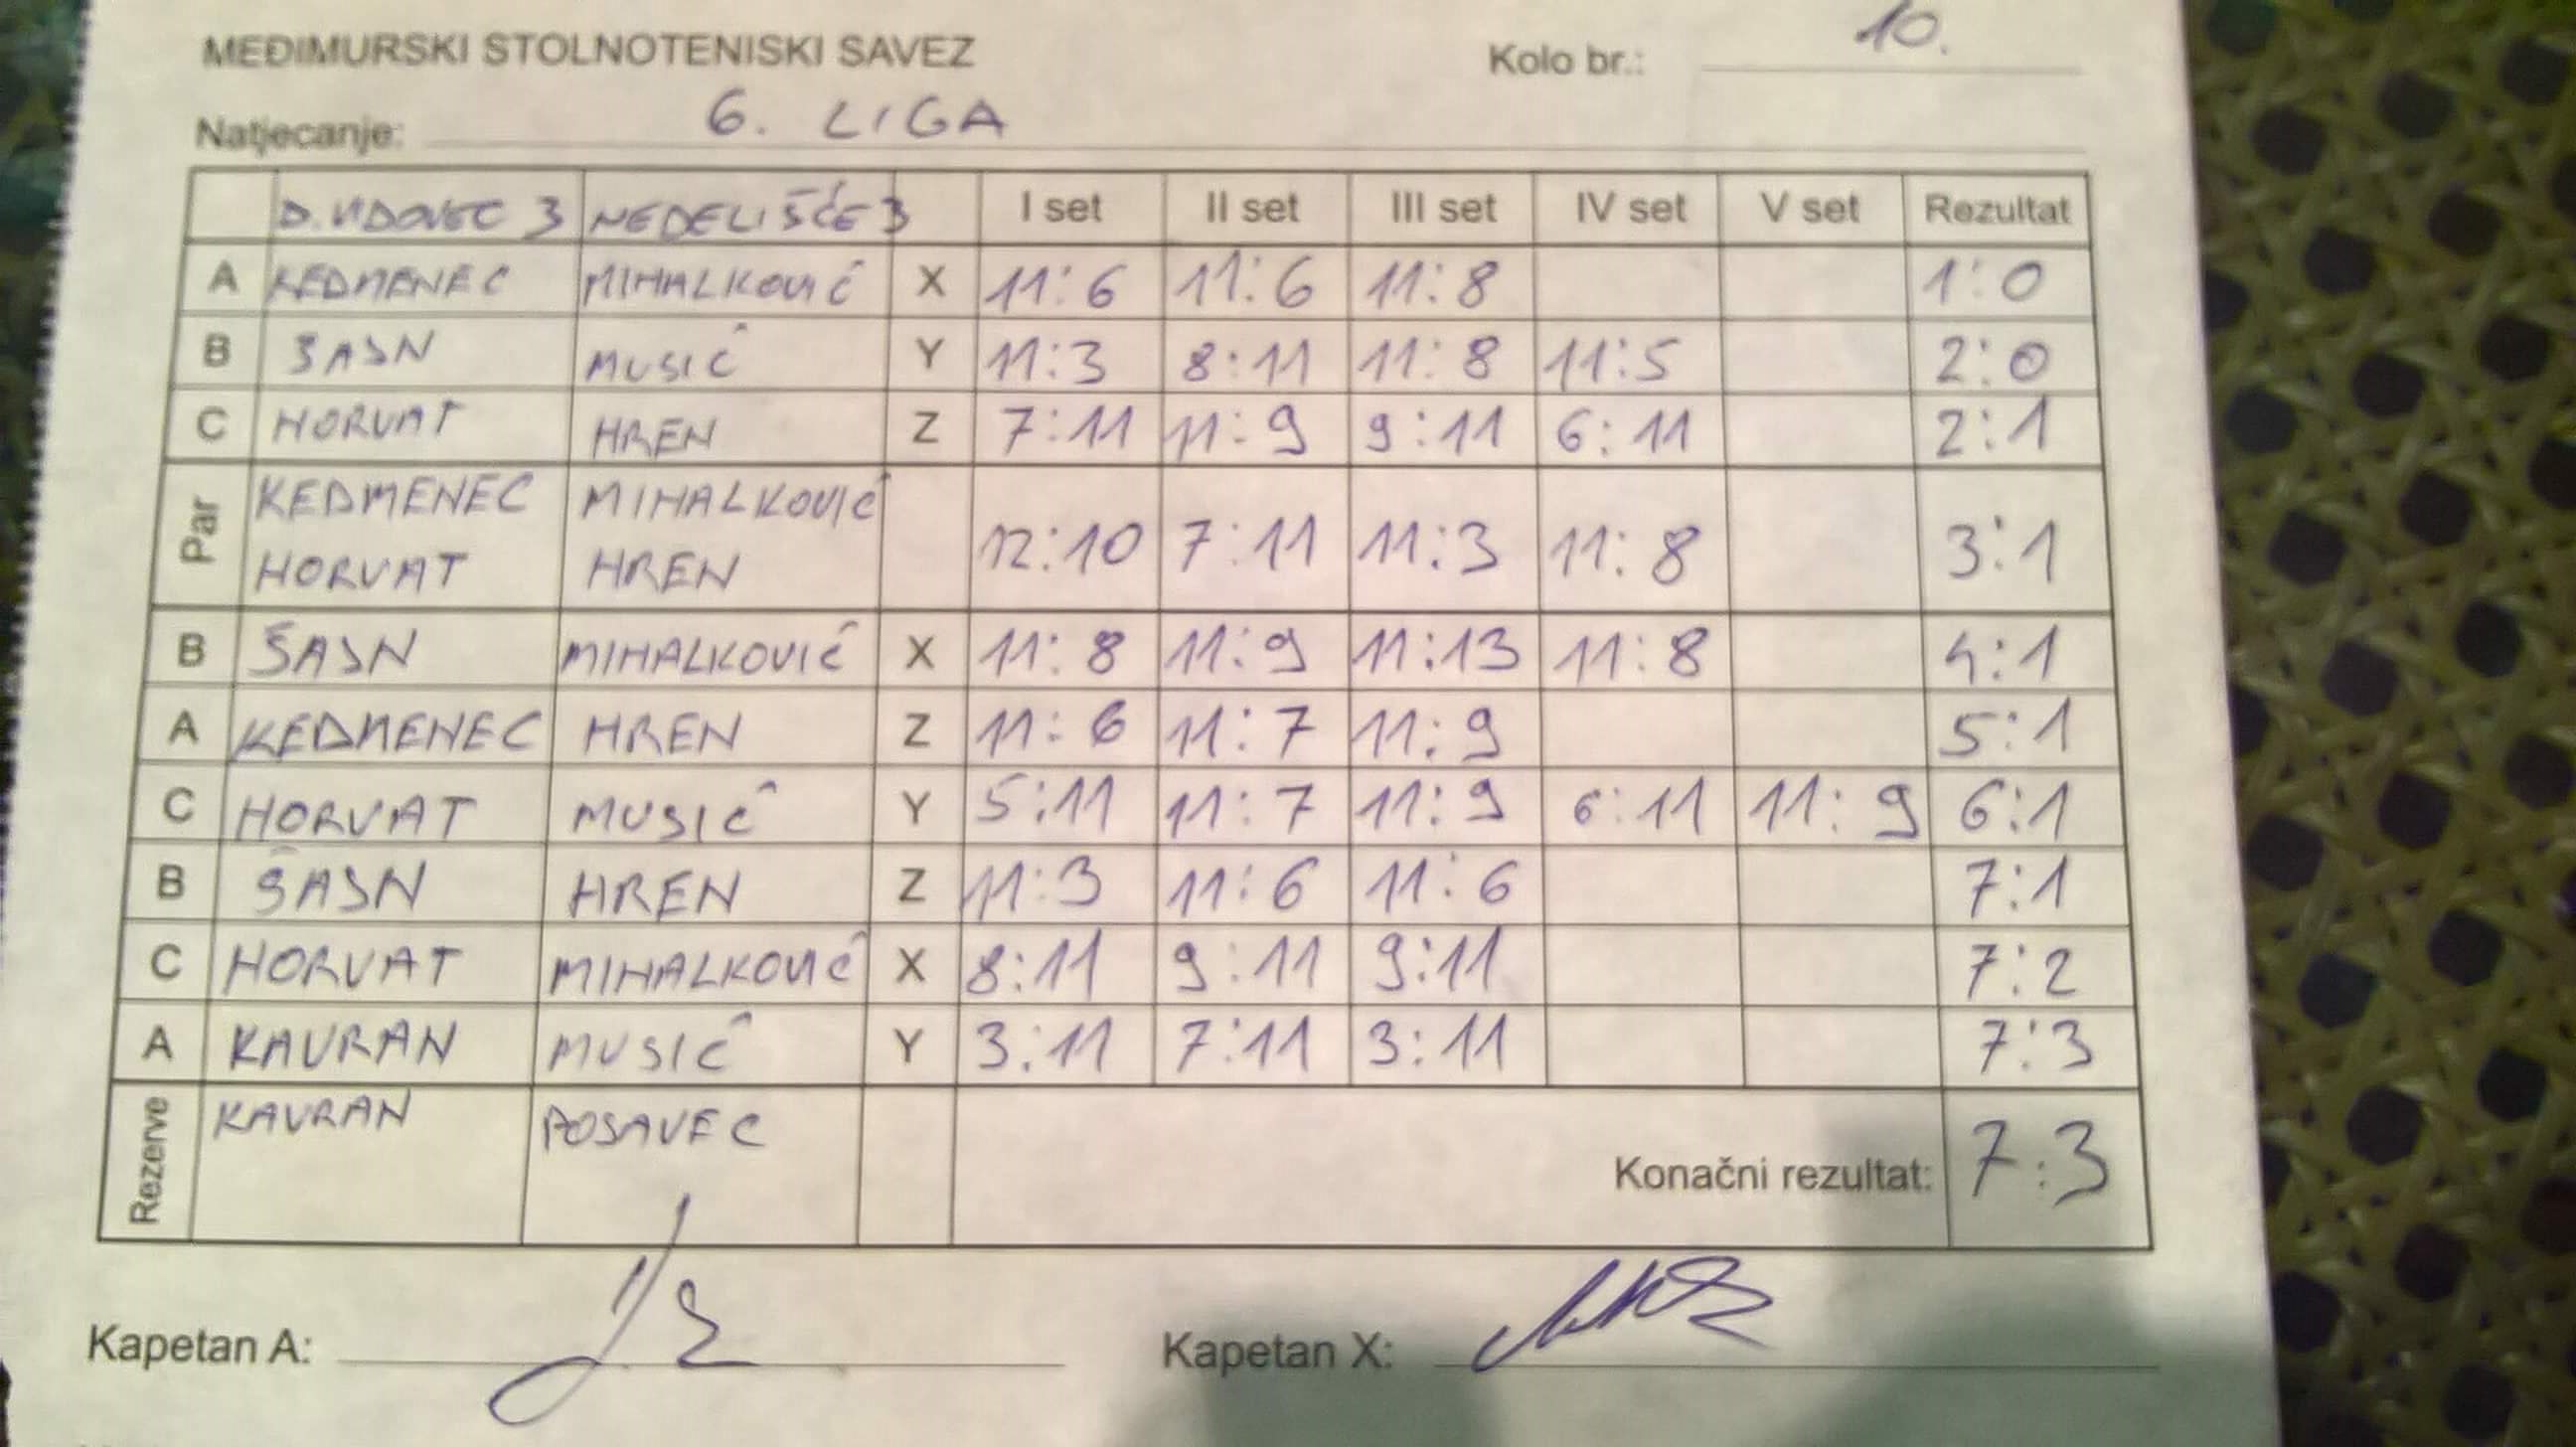 MEĐIMURSKI STOLNOTENISKI SAVEZ Kolo br.: 10.
Natjecanje: 6. LIGA
D.VIDOVEC 3 NEDELIŠĆE 3 I set II set III set IV set V set Rezultat
A KEDMENEC MIHALKOVIĆ X 11:6 11:6 11:8 1:0
B ŠAJN MUSIĆ Y 11:3 8:11 11:8 11:5 2:0
C HORVAT HREN Z 7:11 11:9 9:11 6:11 2:1
Par KEDMENEC MIHALKOVIĆ
HORVAT HREN 12:10 7:11 11:3 11:8 3:1
B ŠAJN MIHALKOVIĆ X 11:8 11:9 11:13 11:8 4:1
A KEDMENEC HREN Z 11:6 11:7 11:9 5:1
C HORVAT MUSIĆ Y 5:11 11:7 11:9 6:11 11:9 6:1
B ŠAJN HREN Z 11:3 11:6 11:6 7:1
C HORVAT MIHALKOVIĆ X 8:11 9:11 9:11 7:2
A KAVRAN MUSIĆ Y 3:11 7:11 3:11 7:3
Rezerve KAVRAN POSAVEC
Konačni rezultat: 7:3
Kapetan A: Kapetan X: